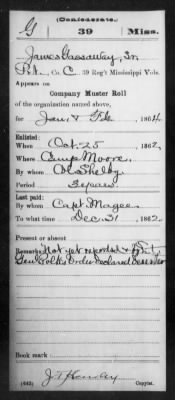 (Confederate.)
G 39 Miss.
James Gassaway, Sr.
Pvt., Co. C, 39 Reg't Mississippi Vols.
Appears on
Company Muster Roll
of the organization named above,
for Jan. & Feb., 1864.
Enlisted:
When Oct. 25, 1862.
Where Camp Moore.
By whom O. Shelby
Period 3 years
Last paid:
By whom Capt. Magee
To what time Dec. 31, 1862.
Present or absent
Remarks: Not yet reported &
Gen Polks Order declared deserter
Book mark:
(642) Copyist.